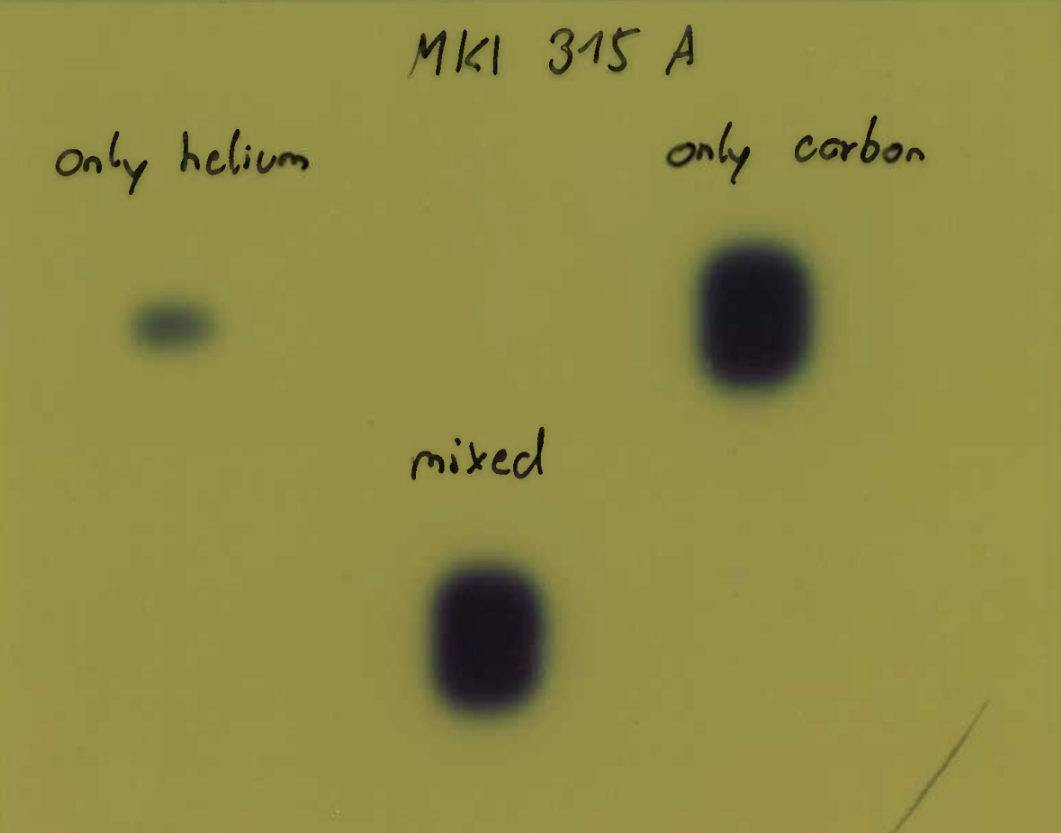 MKI 315 A
only helium
only carbon
mixed